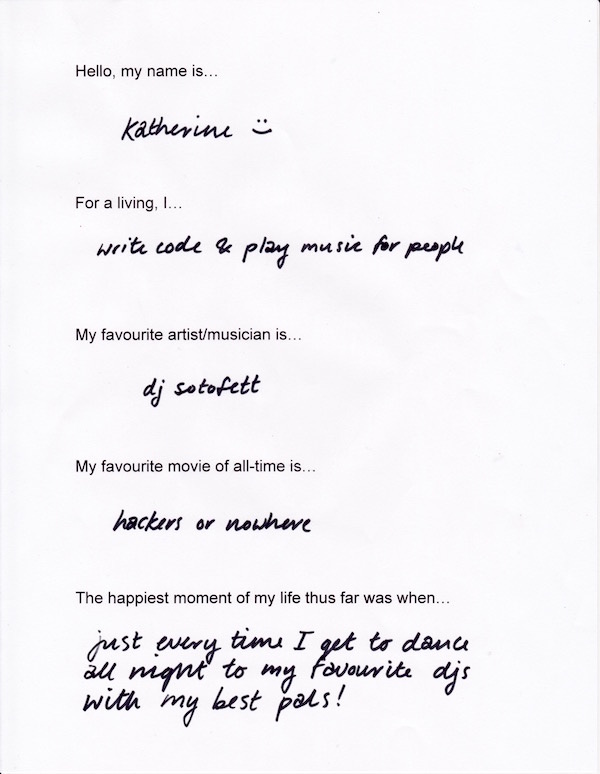 Hello, my name is…
Katherine :)
For a living, I…
write code & play music for people
My favourite artist/musician is…
dj sotofett
My favourite movie of all-time is…
hackers or nowhere
The happiest moment of my life thus far was when…
just every time I get to dance
all night to my favourite djs
with my best pals!